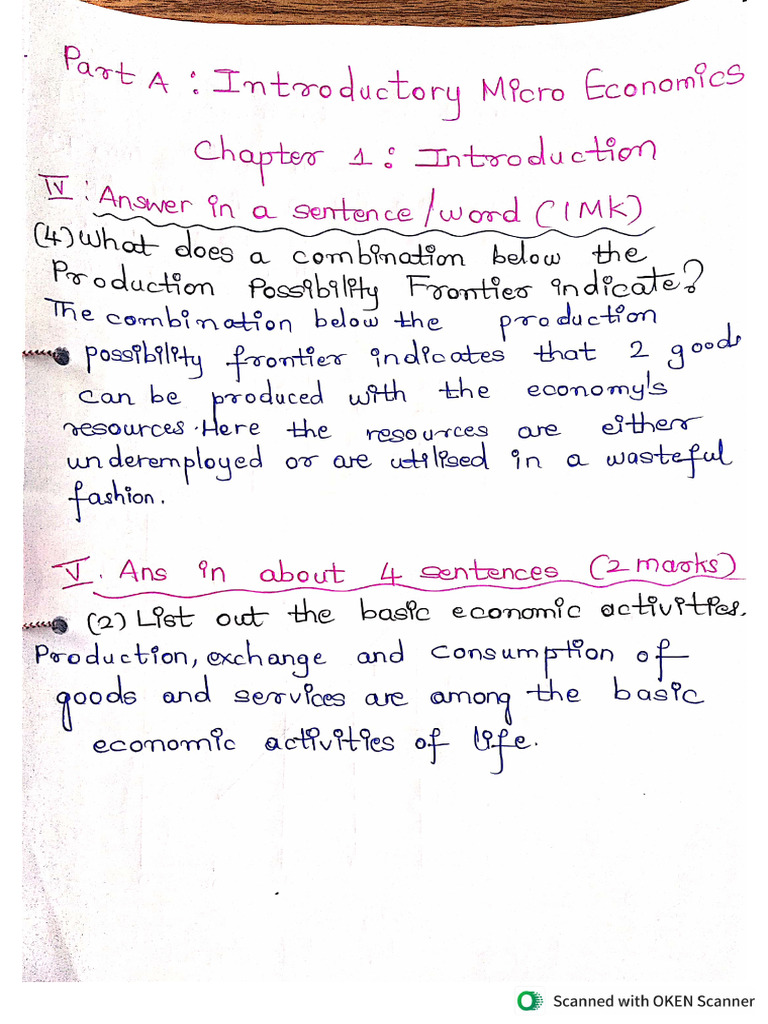 Part A : Introductory Micro Economics
Chapter 1 : Introduction
IV : Answer in a sentence/word (1MK)
(4) What does a combination below the
Production Possibility Frontier indicate?
The combination below the production
possibility frontier indicates that 2 goods
can be produced with the economy's
resources. Here the resources are either
underemployed or are utilised in a wasteful
fashion.
V. Ans in about 4 sentences (2 marks)
(2) List out the basic economic activities.
Production, exchange and consumption of
goods and services are among the basic
economic activities of life.
Scanned with OKEN Scanner